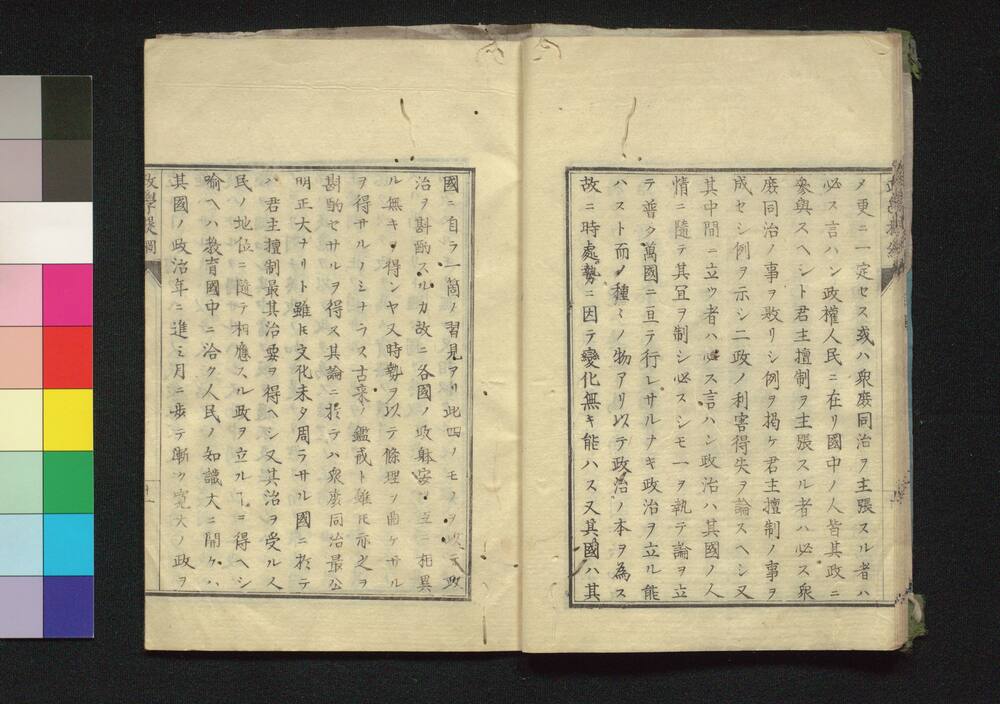 メ更ニ一定セス或ハ衆庶同治ヲ主張スル者ハ
必ス言ハン政權人民ニ在リ國中ノ人皆其政ニ
參與スヘシト君主擅制ヲ主張スル者ハ必ス衆
庶同治ノ事ヲ敗リシ例ヲ掲ケ君主擅制ノ事ヲ
成セシ例ヲ示シ二政ノ利害得失ヲ論スヘシ又
其中間ニ立ツ者ハ必ス言ハン政治ハ其國ノ人
情ニ隨テ其冝ヲ制シ必スシモ一ヲ執テ論ヲ立
テ普ク萬國ニ亘テ行レサルナキ政治ヲ立ル能
ハスト而ノ種々ノ物アリ以テ政治ノ本ヲ為ス
故ニ時處勢ニ因テ變化無キ能ハス又其國ハ其
國ニ自ラ一箇ノ習見アリ此四ノモノヲ以テ政
治ヲ斟酌スルカ故ニ各國ノ政躰安ン互ニ相異
ル無キヿ得ンヤ又時勢ヲ以テ條理ヲ曲ケサル
ヲ得サルノミナラス古来ノ鑑戒ト雖𪜈亦之ヲ
斟酌セサルヲ得ス其論ニ於テハ衆庶同治最公
明正大ナリト雖𪜈文化未タ周ラサル國ニ於テ
ハ君主擅制最其治要ヲ得ヘシ又其治ヲ受ル人
民ノ地位ニ隨テ相應スル政ヲ立ルヿニ得ヘシ
喻ヘハ教育國中ニ洽ク人民ノ知識大ニ開ケハ
其國ノ政治年ニ進ミ月ニ歩テ漸ク寛大ノ政ヲ
政學提綱